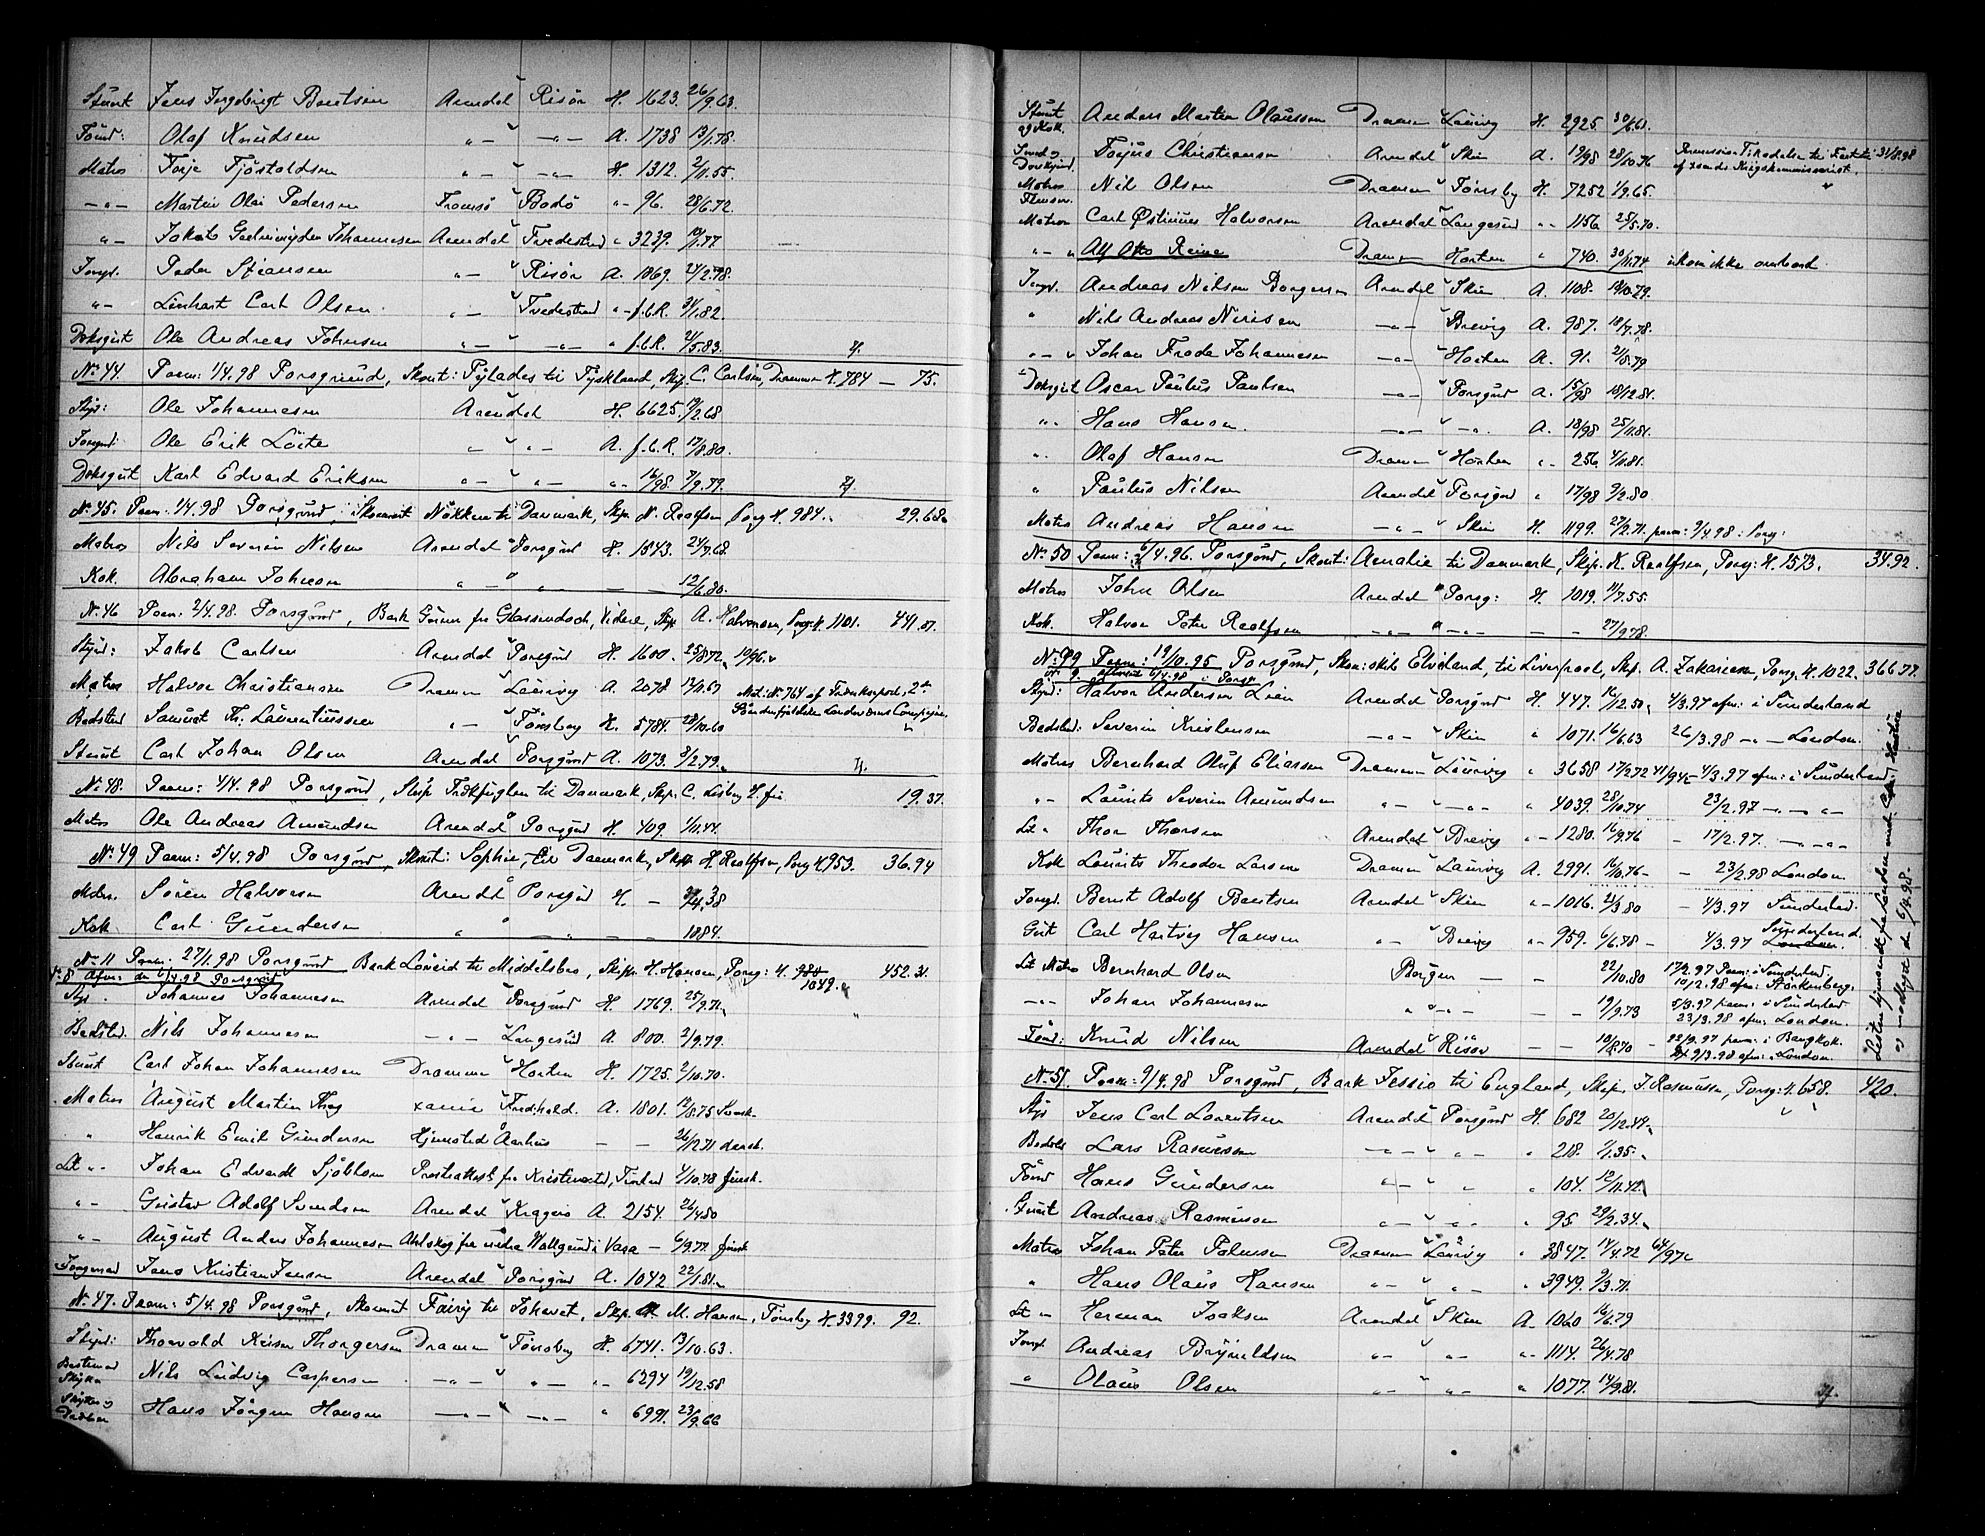 Stuert Jens Ingebrigt Bentsen Arendal Risör H. 1623. 26/9.63.
Tömd: Olaf Knudsen " - " - " - A. 1738 13/1.78.
Matros Torje Tjöstoldsen " - " - " - H. 1312. 2/11.55.
- " - Martin Olai Pedersen Tromsö Bodö " - 96. 28/6.72.
" - Jakob Johannesen Arendal Tvedestrand " 3239. 19/1.77
Jungm. Peder Stiansen " - Risör A. 1869. 24/2.78.
" - Linhart Carl Olsen " - Tvedestrand " - f.b.R. 31/1.82.
Dæksgut Ole Andreas Johnsen " - " - " f.b.R. 2/5.83.
No. 44. Paam: 1/4.98 Porsgrund, Skont: Pylades til Tyskland, Skip. C. Carlsen, Drammen H. 784 — 75.
Styr: Ole Johannesen Arendal H. 6625. 19/2.68
Jungm: Ole Erik Löite " - " - A. f.b.R. 17/8.80.
Dæksgut Karl Edvard Eriksen " - " - " - 14/98. 7/9.79.
No. 45. Paam: 1/4.98 Porsgrund, Skonnert Nökken til Danmark, Skip. N. Realfsen Porsg. H. 984. 29.68
Matros Nils Severin Nilsen Arendal Porsgrund H. 1843. 24/7.68.
Kok. Abraham Johnsen " - " " - — — 12/6.80.
No. 46 Paam: 2/4.98. Porsgrund, Bark Grimm fra Glassendock, Skip. A. Halvorsen, Porsg. H. 1101. 441.07.
Styrm: Jakob Carlsen Arendal Porsgrund H. 1600. 25/8.72. 10/96.
Matros Halvor Christiansen Drammen Laurvig A. 2078 12/10.67 Mat: No. 764 af Frederiksværn, 2det
Bødstmd Samust Th: Laurentiussen " - Tönsberg H. 5784. 28/10.60 Söndenfjeldske Landeværns Compagni.
Stuert Carl Johan Olsen Arendal Porsgrund A. 1073. 3/2.79.
No. 48. Paam: 4/4.98 Porsgrund, Slup Isfuglen til Danmark, Skip. C. Lisberg H. fri. 19.37.
Matros Ole Andreas Amundsen Arendal Porsgrund H. 409. 1/11.44.
No. 49 Paam: 5/4.98 Porsgrund, Skont: Sophie, til Danmark, Skip. H. Realfsen, Porsg H. 953. 36.94
Matros. Sören Halvorsen Arendal Porsgrund H. — 3/4.38
Kok Carl Gundersen " " — " — 1884.
No. 11 Paam: 27/1.98 Porsgrund Bark Loveid til Middelsbro, Skip. H. Hansen, Porsg: H. 980 1049. 452.31.
No. 8 Afm: den 6/4.98 Porsgrund
Styr. Johannes Johannesen Arendal Porsgrund H. 1769. 25/9.72.
Bødstmd. Nils Johannesen — " - Langesund A. 800. 2/9.79.
Stuert Carl Johan Johannesen Drammen Horten H. 1725. 2/10.70.
Matros August Martin Xania Fredrhald. A. 1801. 12/8.75 Svensk.
" Henrik Emil Gundersen Hjemsted Aarhus — — 26/12.71 dansk.
Let " - Johan Edvardt Sjöblom Presteattest fra Kristinestad, Finland 4/10.78 finsk.
" - Gustav Adolf Svendsen Arendal Kragerö A. 2154. 26/4.80
" - August Anders Johannesen Ahlskog fra nedre Wallgrund i Vasa — 6/9.77 finsk
Jungmand Jens Kristian Jensen Arendal Porsgrund A. 1042. 22/1.81.
No. 47. Paam: 5/4.98 Porsgrund, Skonnert Fairy til Ishavet, Skip. M. Hansen, Tönsberg H. 3399. 92.
Styrm: Thorvald Thorgersen Drammen Tönsberg H. 6741. 13/10.63.
Bestmand Skytter Nils Ludvig Caspersen — " - " - " - 6294 19/12.58
Skytter og Tödber Hans Jörgen Hansen — " - — " - " 6991. 23/9.66
Stuert og Kok. Anders Martin Olaussen Drammen Laurvig H. 2925. 30/6.61.
Smed og Donkeymd. Torjus Christiansen Arendal Skien A. 19/98 28/10.76 Permission Tilladelse til Fart til 31/8.98
af Krigskommissariat.
Matros Flensen. Nils Olsen Drammen Tönsberg H. 7252 1/9.65.
Matros Carl Östinus Halvorsen Arendal Langesund " - 1156 25/5.70.
" - " Alf Otto Reine Drammen Horten " 740. 30/11.74 ikke ombord.
Jungm. Andreas Nilsen Borgersen Arendal Skien A. 1108. 19/10.79.
" Nils Andreas Nirisen — " - Brevig A. 987. 18/7.78.
" - " Johan Frode Johannesen — " - Horten A. 91. 2/8.79
Dæksgut Oscar Paulus Paulsen — " - Porsgrund A. 15/98 18/12.81.
" . Hans Hansen. — " - — " -. A. 18/98 25/11.81.
" . Olaf Hansen Drammen Horten " - 256. 4/11.81.
" Paulus Nilsen Arendal Porsgrund " 17/98 9/2.80
Matros Andreas Hansen — " - Skien H. 1199. 27/2.71. paam: 9/4.98 i Porsg:
No. 50 Paam: 6/4.96. Porsgrund, Skont: Amalie til Danmark, Skip. K. Realfsen, Porsg: H. 1573. 34.92.
Matros John Olsen Arendal Porsg: H. 1019. 11/7.55.
Kok. Halvor Peter Realfsen — " - " — " - — — 27/9.78.
No. 99 Paam: 19/10.95 Porsgrund, Skon: skib Elveland til Liverpool, Skip. A. Zakariasen, Porsg. H. 1022. 366.77.
No. 9. Afmeldt 6/4.98 i Porsgr
Styrd: Halvor Andersen Lien Arendal Porsgrund H. 447. 14/12.50. 4/3.97 afm: i Sunderland
Bødstmd: Severin Kristensen — " - Skien " 1071. 16/6.63 26/3.98 — " — London.
Matros Bernhard Oluf Eliassen Drammen Laurvig " 3658 17/2.72 41/94 4/3.97 afm: i Sunderland
" - Laurits Severin Amundsen " - — " - " 4039. 28/10.74 23/2.97 — " — " -
Let " Thor Thorsen Arendal Brevig " - 1280. 16/9.76 - 17/2.97. — " — " -
Kok Laurits Theodor Larsen Drammen Laurvig A. 2991. 16/10.76 - - 23/2.98 London.
Jungm. Bernt Adolf Bentsen Arendal Skien " - 1016. 21/3.80 - 4/3.97 Sunderland.
Gut Carl Hartvig Hansen " - Brevig " - 959. 6/6.78 - 4/3.97 Sunderland London.
Let Matros Bernhard Olsen Bergen — — 22/10.80 17/2.97 Paam: i Sunderland. 10/2.98 afm: i Storkenberg.
— " - Johan Johannesen " " - " - — — 19/9.73 5/3.97 paam: i Sunderland 23/3.98 afm: London.
Tömd: Knud Nilsen Arendal Risör — — 18/8.70 - 22/9.97 paam: i Bangkok. 9/3.98 afm: London.
Listen hjemsendt fra London med C. og modtaget den 6/4.98.
No. 51. Paam: 9/4.98 Porsgrund, Bark Jessie til England, Skip. J. Rasmussen, Porsg: H. 658. 420.
Styr Jens Carl Lorentsen Arendal Porsgrund H. 682 20/12.44.
Bødstmd Lars Rasmussen — " - " - " 218. 7/1.35.
Tömd Hans Gundersen " - " " " 104. 12/11.42.
Stuert Andreas Rasmussen " - " - " 95 29/2.34.
Matros Johan Peter Palmesen Drammen Laurvig " 3847. 14/4.72 64/97
" Hans Olaus Hansen " - " " - " 3949. 9/3.71.
Let " - Herman Isaksen Arendal Skien A. 1060 16/6.79
Jungm. Andreas Brynildsen " - " - " - 1114. 26/4.78
" Olaus Olsen " - " - " 1077. 14/9.81.